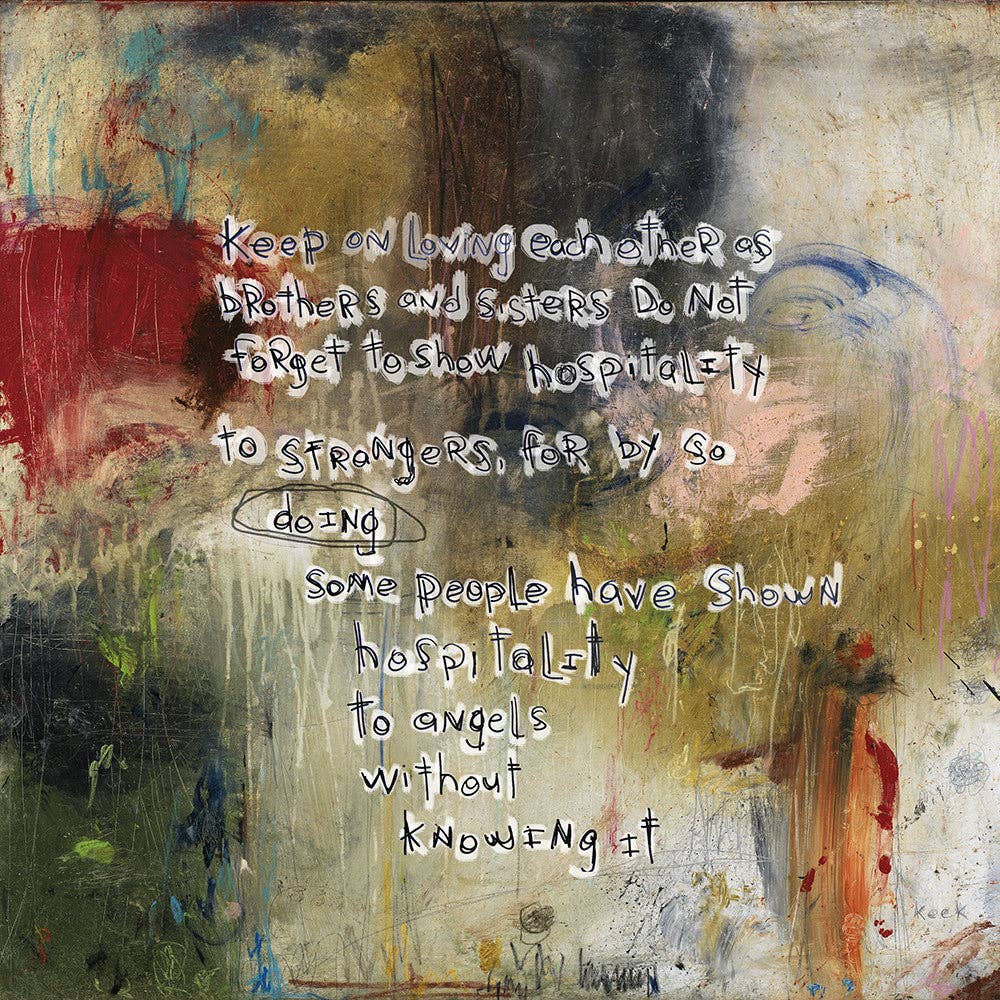 Keep on Loving each other as
brothers and sisters Do Not
forget to show hospitality
to strangers, for by so
doing
some people have shown
hospitality
to angels
without
knowing it
Keek